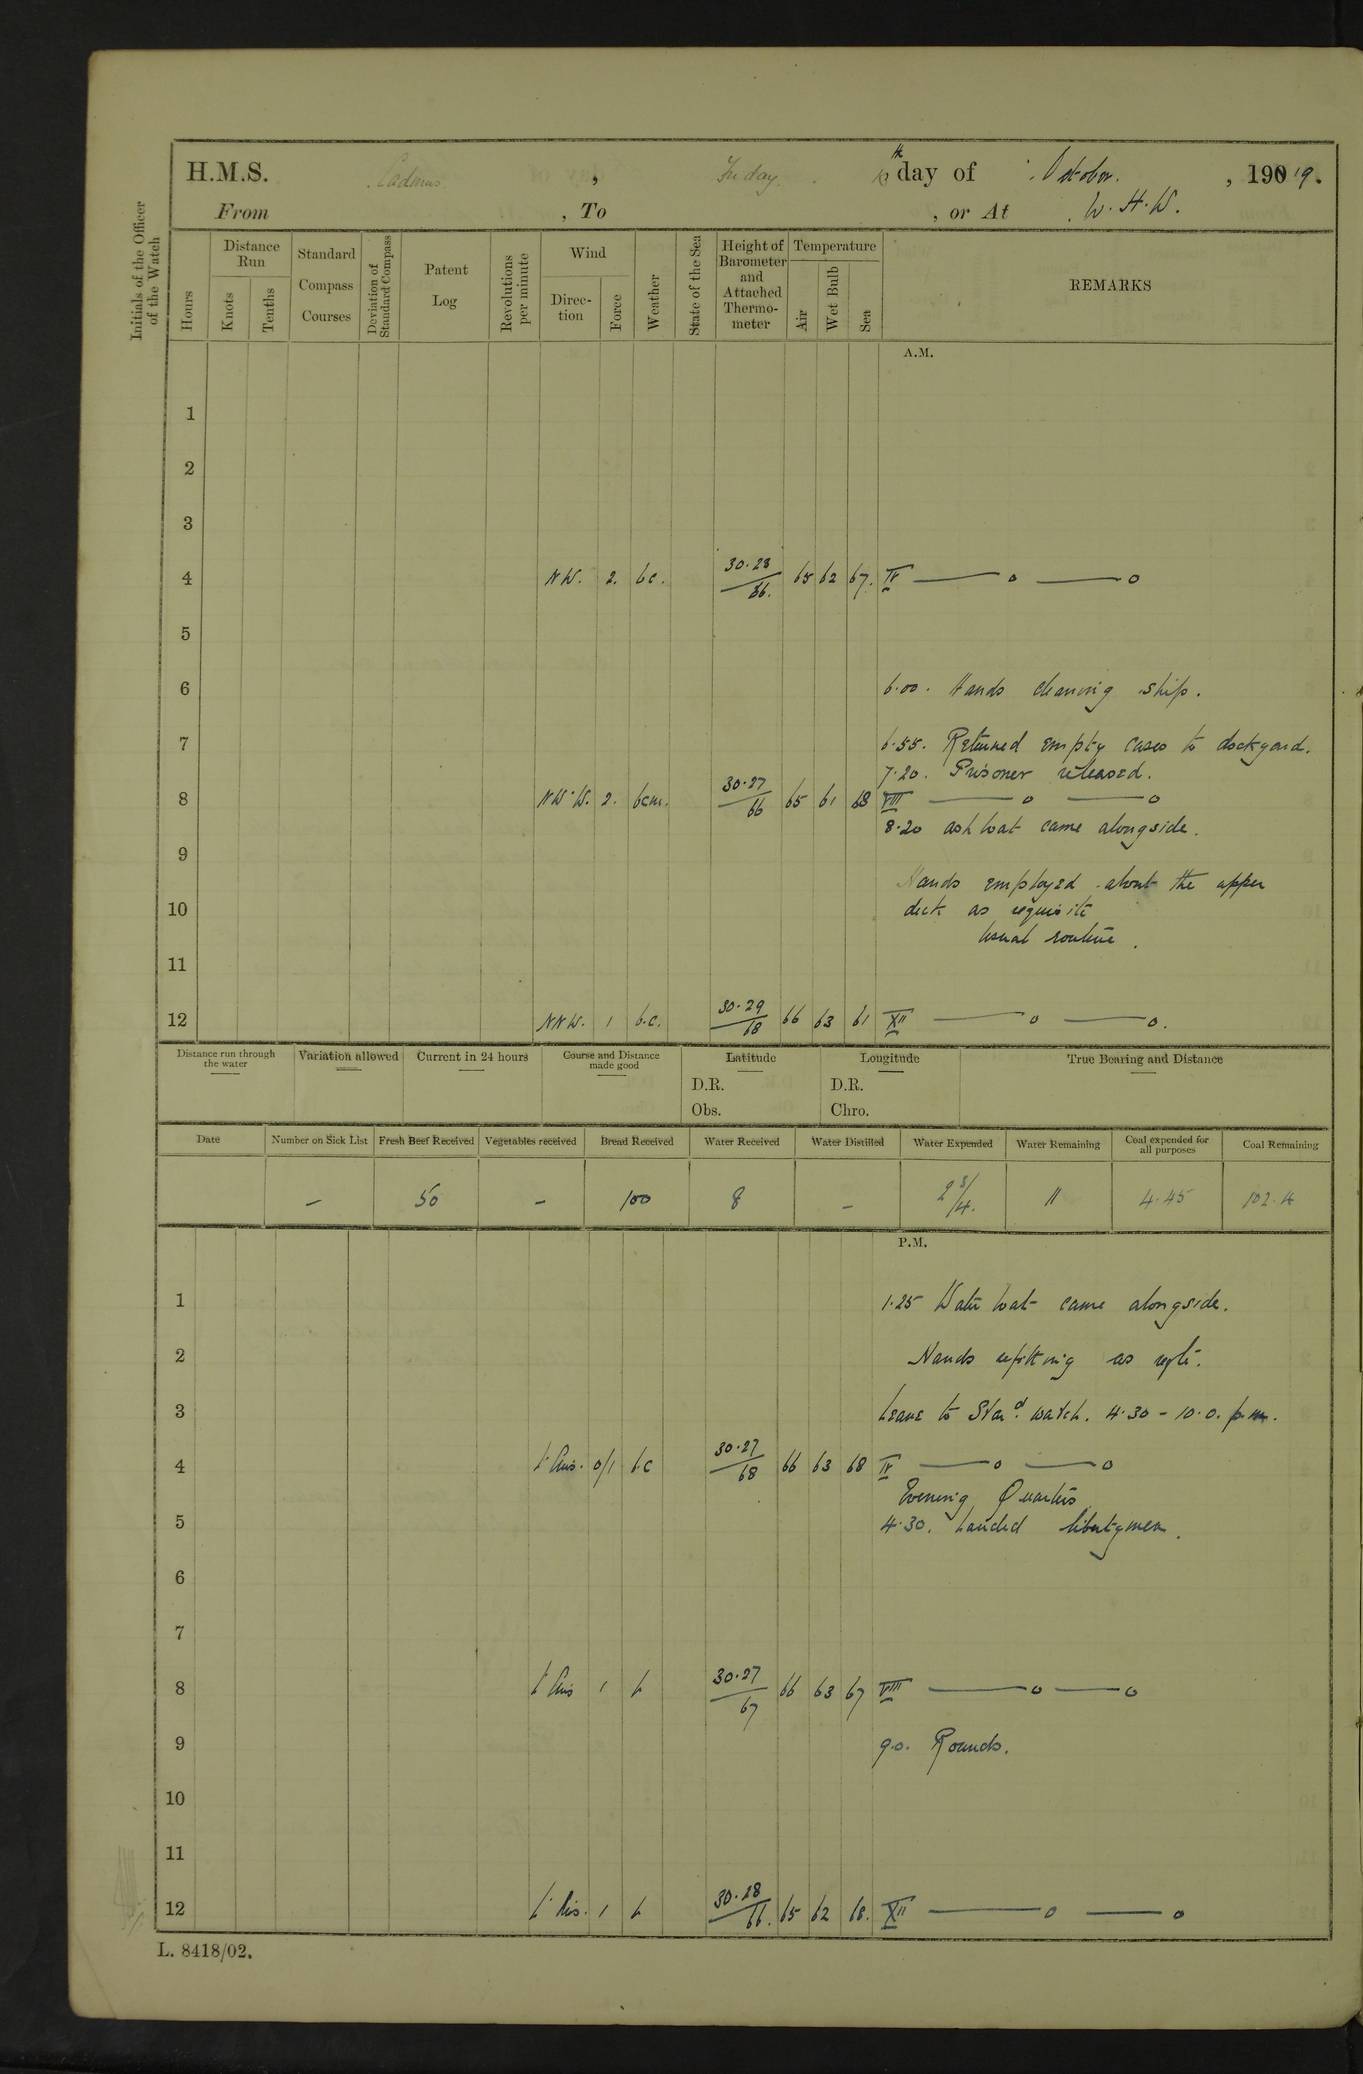 H.M.S. Cadmus, Friday 10th day of October, 1919.
From , To , or At W.H.W.
Initials of the Officer of the Watch
Hours
Distance Run
Knots
Tenths
Standard Compass Courses
Deviation of Standard Compass
Patent Log
Revolutions per minute
Wind
Direction
Force
Weather
State of the Sea
Height of Barometer and Attached Thermometer
Temperature
Air
Wet Bulb
Sea
REMARKS
A.M.
1
2
3
4 NW. 2. bc. 30.28/66. 65 62 67. IV —o —o
5
6 6.00. Hands cleaning ship.
7 6.55. Returned empty cases to dockyard.
7.20. Prisoner released.
8 NW'W. 2. bcm. 30.27/66 65 61 68 VIII —o —o
8.20 ash boat came alongside.
9
Hands employed about the upper
10 deck as requisite
Usual routine.
11
12 NNW. 1 b.c. 30.29/68 66 63 61 XII —o —o.
Distance run through the water
Variation allowed
Current in 24 hours
Course and Distance made good
Latitude
D.R.
Obs.
Longitude
D.R.
Chro.
True Bearing and Distance
Date
Number on Sick List
Fresh Beef Received
Vegetables received
Bread Received
Water Received
Water Distilled
Water Expended
Water Remaining
Coal expended for all purposes
Coal Remaining
– 50 – 100 8 – 2 3/4. 11 4.45 102.4
P.M.
1 1.25 Water boat came alongside.
2 Hands refitting as reqte.
3 Leave to Stard. watch. 4.30 - 10.0. p.m.
4 Lt Airs. 0/1 b.c 30.27/68 66 63 68 IV —o —o
Evening Quarters
5 4.30. Landed libertymen.
6
7
8 Lt Airs 1 b 30.27/67 66 63 67 VIII —o —o
9 9.0. Rounds.
10
11
12 Lt Airs. 1 b 30.28/66. 65 62 68. XII —o —o
L. 8418/02.